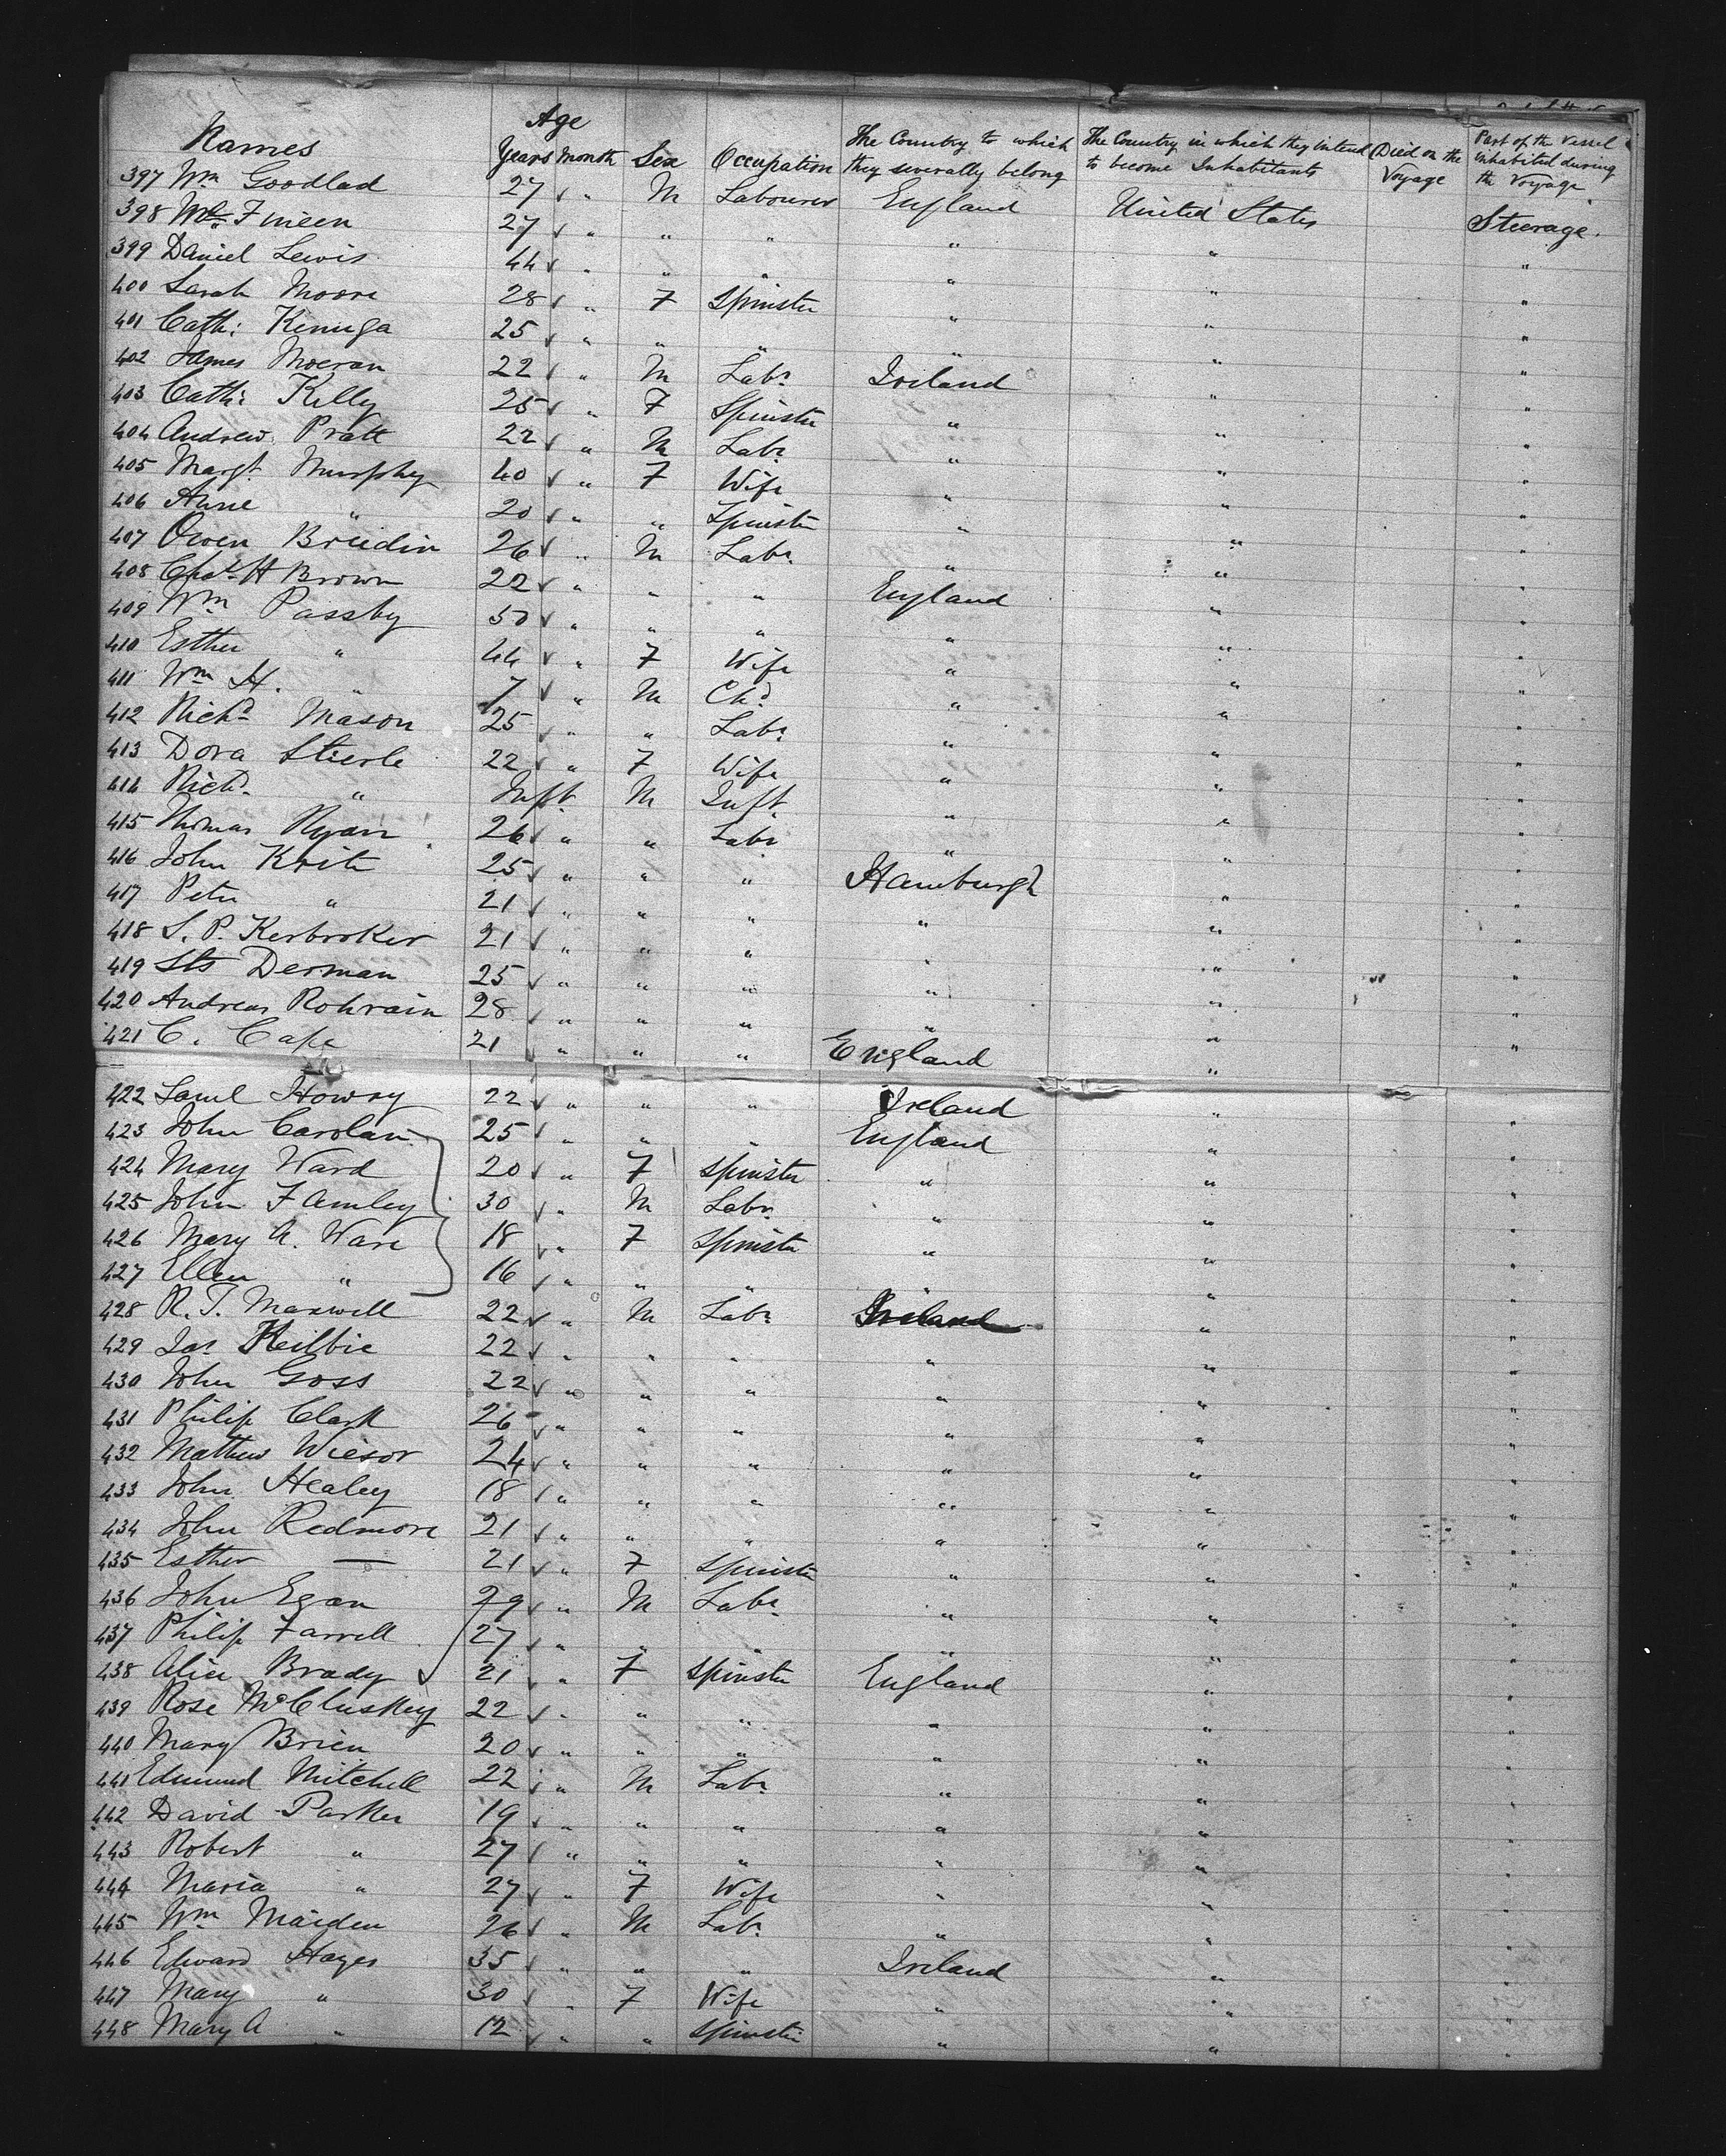 Names Age Years Month Sex Occupation The Country to which they severally belong The Country in which they intend to become Inhabitants Died on the Voyage Part of the Vessel inhabited during the Voyage
397 Wm Goodlad 27 " M Labourer England United States Steerage.
398 Fineen 27 " " " " " "
399 Daniel Lewis 44 " " " " " "
400 Sarah Moore 28 " F Spinster " " "
401 Cath: Kenuga 25 " " " " " "
402 James Moeran 22 " M Labr Ireland " "
403 Cath: Kelly 25 " F Spinster " " "
404 Andrew Pratt 22 " M Labr " " "
405 Margt. Murphy 40 " F Wife " " "
406 Anne " 20 " " Spinster " " "
407 Owen Briedin 26 " M Labr " " "
408 Chas. H Brown 22 " " " England " "
409 Wm Passby 50 " " " " " "
410 Esther " 44 " F Wife " " "
411 Wm H. " 7 " M Chd " " "
412 Richd Mason 25 " " Labr " " "
413 Dora Steerle 22 " F Wife " " "
414 Richd " Inft. M Inft. " " "
415 Thomas Ryan 26 " " Labr " " "
416 John Krite 25 " " " Hamburgh " "
417 Peter " 21 " " " " " "
418 S. P. Kerbroker 21 " " " " " "
419 Derman 25 " " " " " "
420 Andreas Rohrain 28 " " " " " "
421 C. Cape 21 " " " England " "
422 Saml Howry 22 " " " Ireland " "
423 John Carolan 25 " " " England " "
424 Mary Ward 20 " F Spinster " " "
425 John Famley 30 " M Labr " " "
426 Mary A. Ware 18 " F Spinster " " "
427 Ellen " 16 " " " " " "
428 R. T. Maxwell 22 " M Labr Ireland " "
429 Jas Keilbie 22 " " " " " "
430 John Goss 22 " " " " " "
431 Philip Clark 26 " " " " " "
432 Mathew Wiesor 24 " " " " " "
433 John Healey 18 " " " " " "
434 John Redmore 21 " " " " " "
435 Esther — 21 " F Spinster " " "
436 John Egan 29 " M Labr " " "
437 Philip Farrell 27 " " " " " "
438 Alice Brady 21 " F Spinster England " "
439 Rose McCluskey 22 " " " " " "
440 Mary Brien 20 " " " " " "
441 Edmund Mitchell 22 " M Labr " " "
442 David Parker 19 " " " " " "
443 Robert " 27 " " " " " "
444 Maria " 27 " F Wife " " "
445 Wm Maiden 26 " M Labr " " "
446 Edward Hayes 35 " " " Ireland " "
447 Mary " 30 " F Wife " " "
448 Mary A " 12 " " Spinster " " "